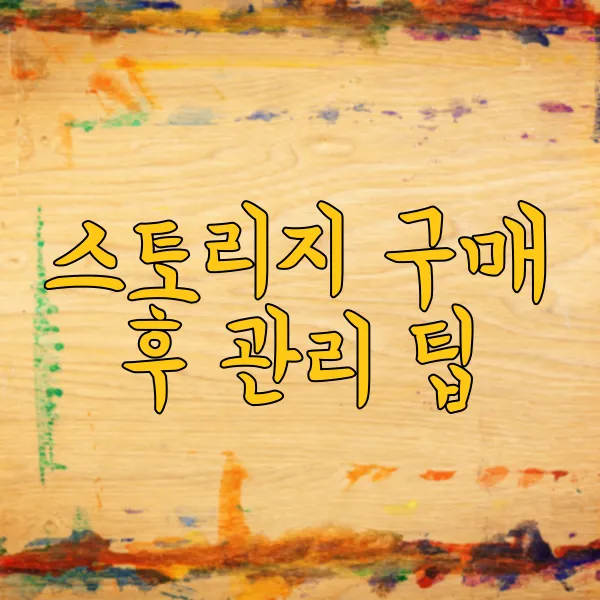 스토리지 구매
후 관리 팁